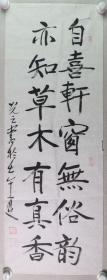 自喜軒窗無俗韵
亦知草木有真香